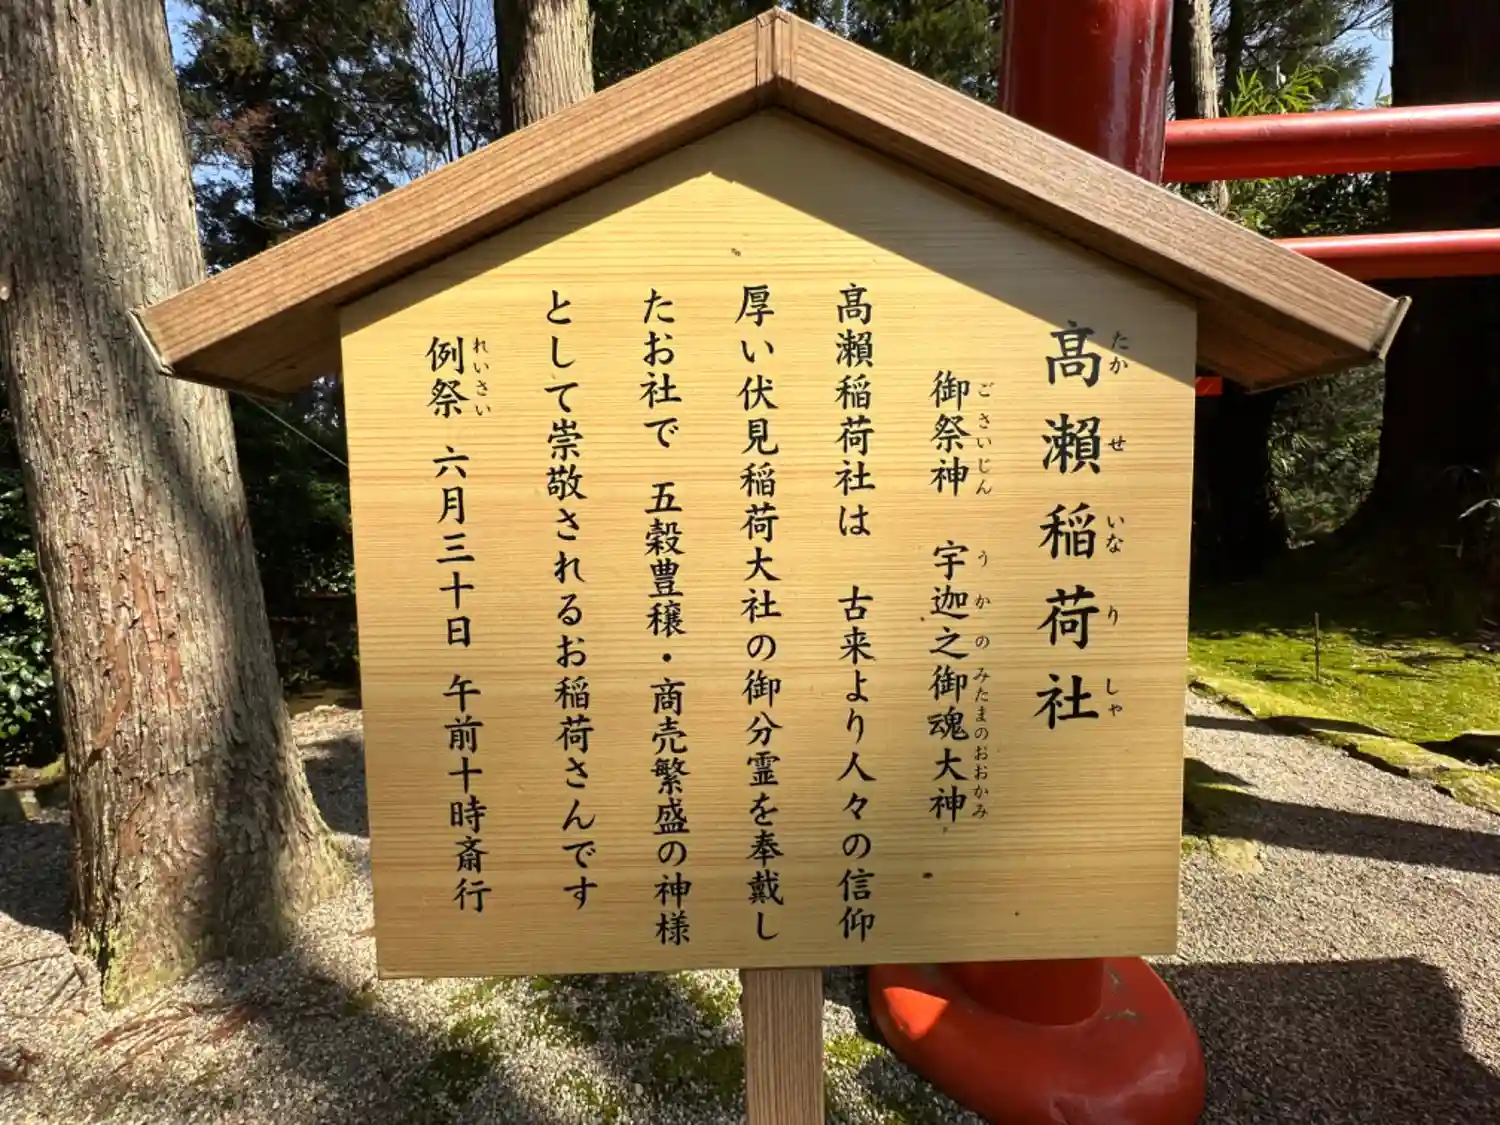 髙瀨稲荷社
たかせいなりしゃ
御祭神　宇迦之御魂大神
ごさいじん　うかのみたまのおおかみ
髙瀨稲荷社は　古来より人々の信仰
厚い伏見稲荷大社の御分霊を奉戴し
たお社で　五穀豊穣・商売繁盛の神様
として崇敬されるお稲荷さんです
例祭　六月三十日　午前十時斎行
れいさい